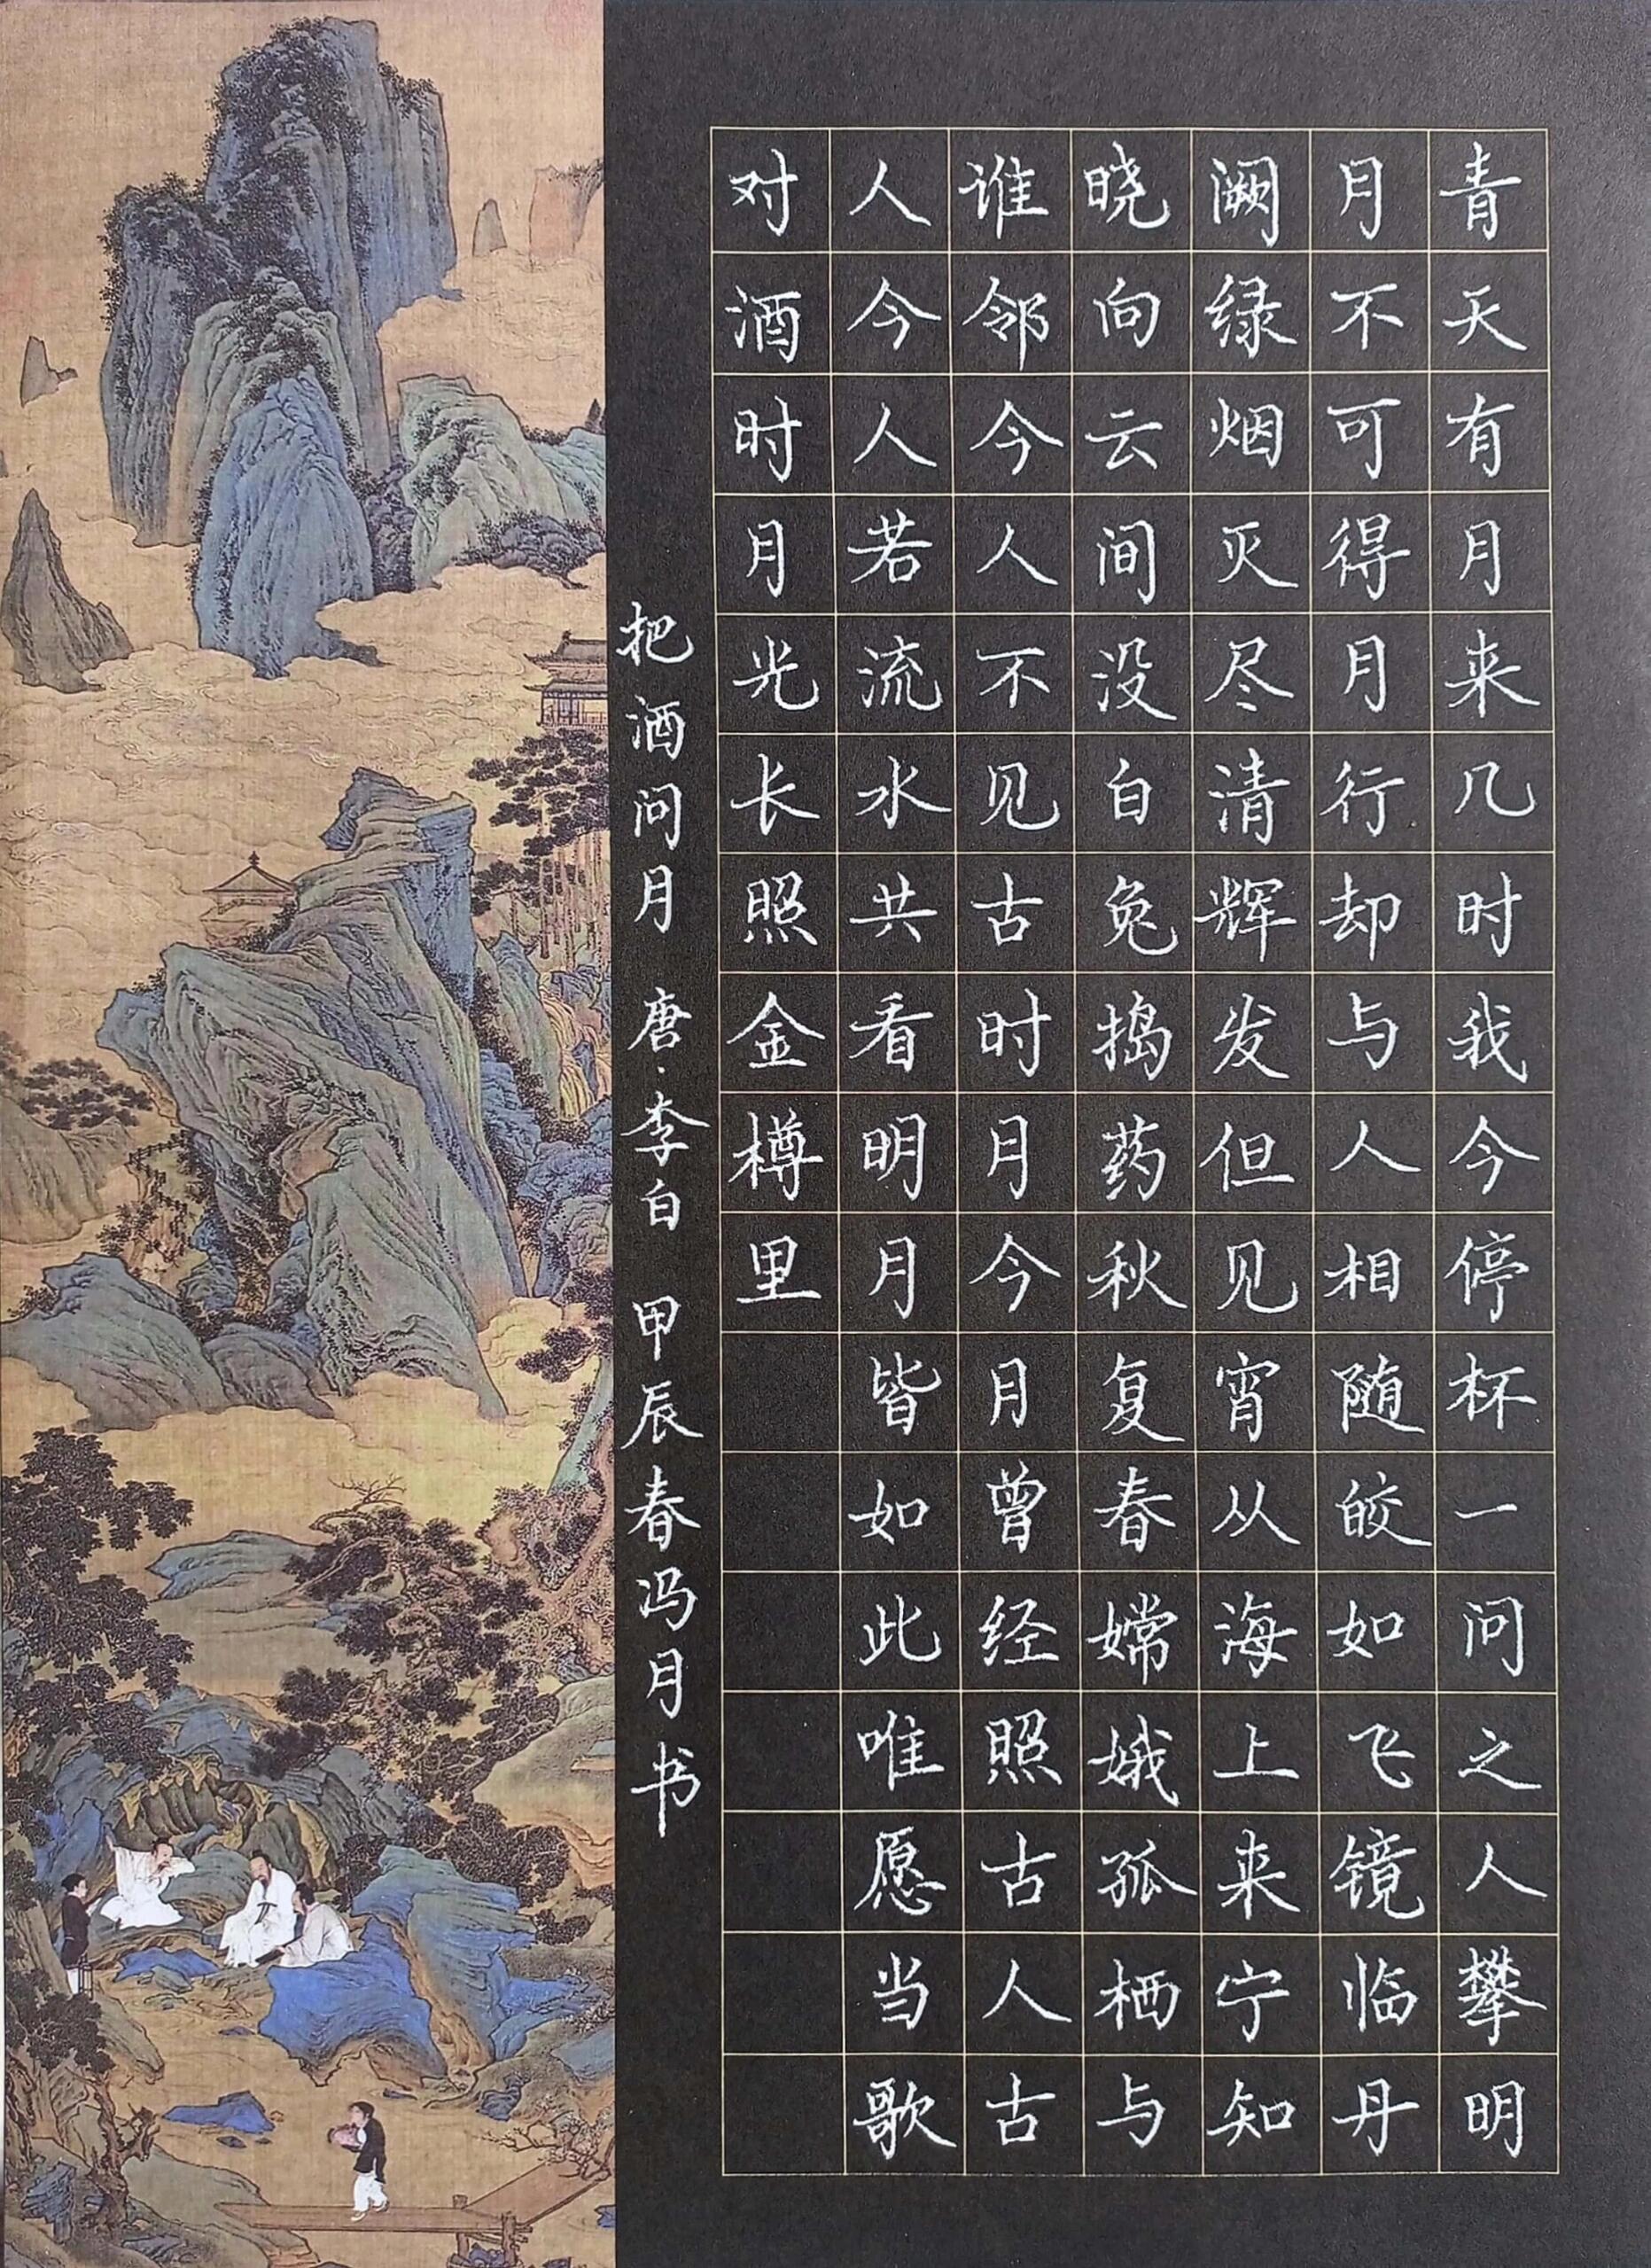 青天有月来几时我今停杯一问之人攀明
月不可得月行却与人相随皎如飞镜临丹
阙绿烟灭尽清辉发但见宵从海上来宁知
晓向云间没白兔捣药秋复春嫦娥孤栖与
谁邻今人不见古时月今月曾经照古人古
人今人若流水共看明月皆如此唯愿当歌
对酒时月光长照金樽里
把酒问月 唐·李白 甲辰春冯月书